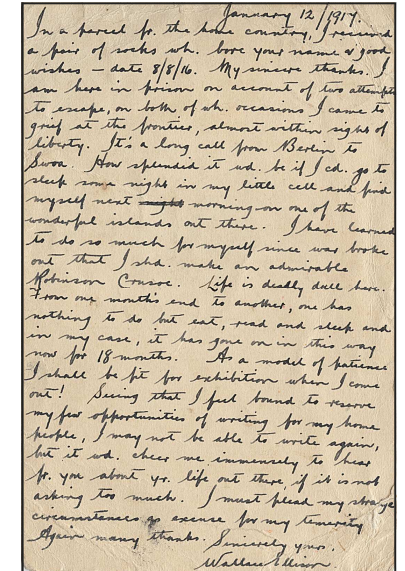 January 12/1917.
In a parcel fr. the home country, I received
a pair of socks wh. bore your name & good
wishes – date 8/8/16. My sincere thanks. I
am here in prison on account of two attempts
to escape, on both of wh. occasions I came to
grief at the frontier, almost within sight of
liberty. It's a long call from Berlin to
Suva. How splendid it wd. be if I cd. go to
sleep some night in my little cell and find
myself next night morning on one of the
wonderful islands out there. I have learned
to do so much for myself since war broke
out that I shd. make an admirable
Robinson Crusoe. Life is deadly dull here.
From one month's end to another, one has
nothing to do but eat, read and sleep and
in my case, it has gone on in this way
now for 18 months. As a model of patience
I shall be fit for exhibition when I come
out! Seeing that I feel bound to reserve
my few opportunities of writing for my home
people, I may not be able to write again,
but it wd. cheer me immensely to hear
fr. you about yr. life out there, if it is not
asking too much. I must plead my strange
circumstances as excuse for my temerity
Again many thanks. Sincerely yours,
Wallace Ellison.